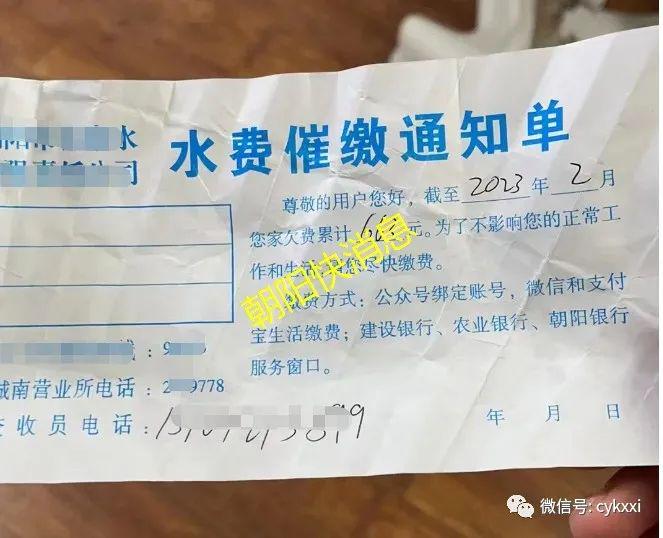 水
公司
水费催缴通知单
尊敬的用户您好，截至 2023 年 2 月
您家欠费累计 元。为了不影响您的正常工
作和生活，请您尽快缴费。
缴费方式：公众号绑定账号，微信和支付
宝生活缴费；建设银行、农业银行、朝阳银行
服务窗口。
城南营业所电话：2 9778
查收员电话：
年 月 日
朝阳快消息
微信号: cykxxi